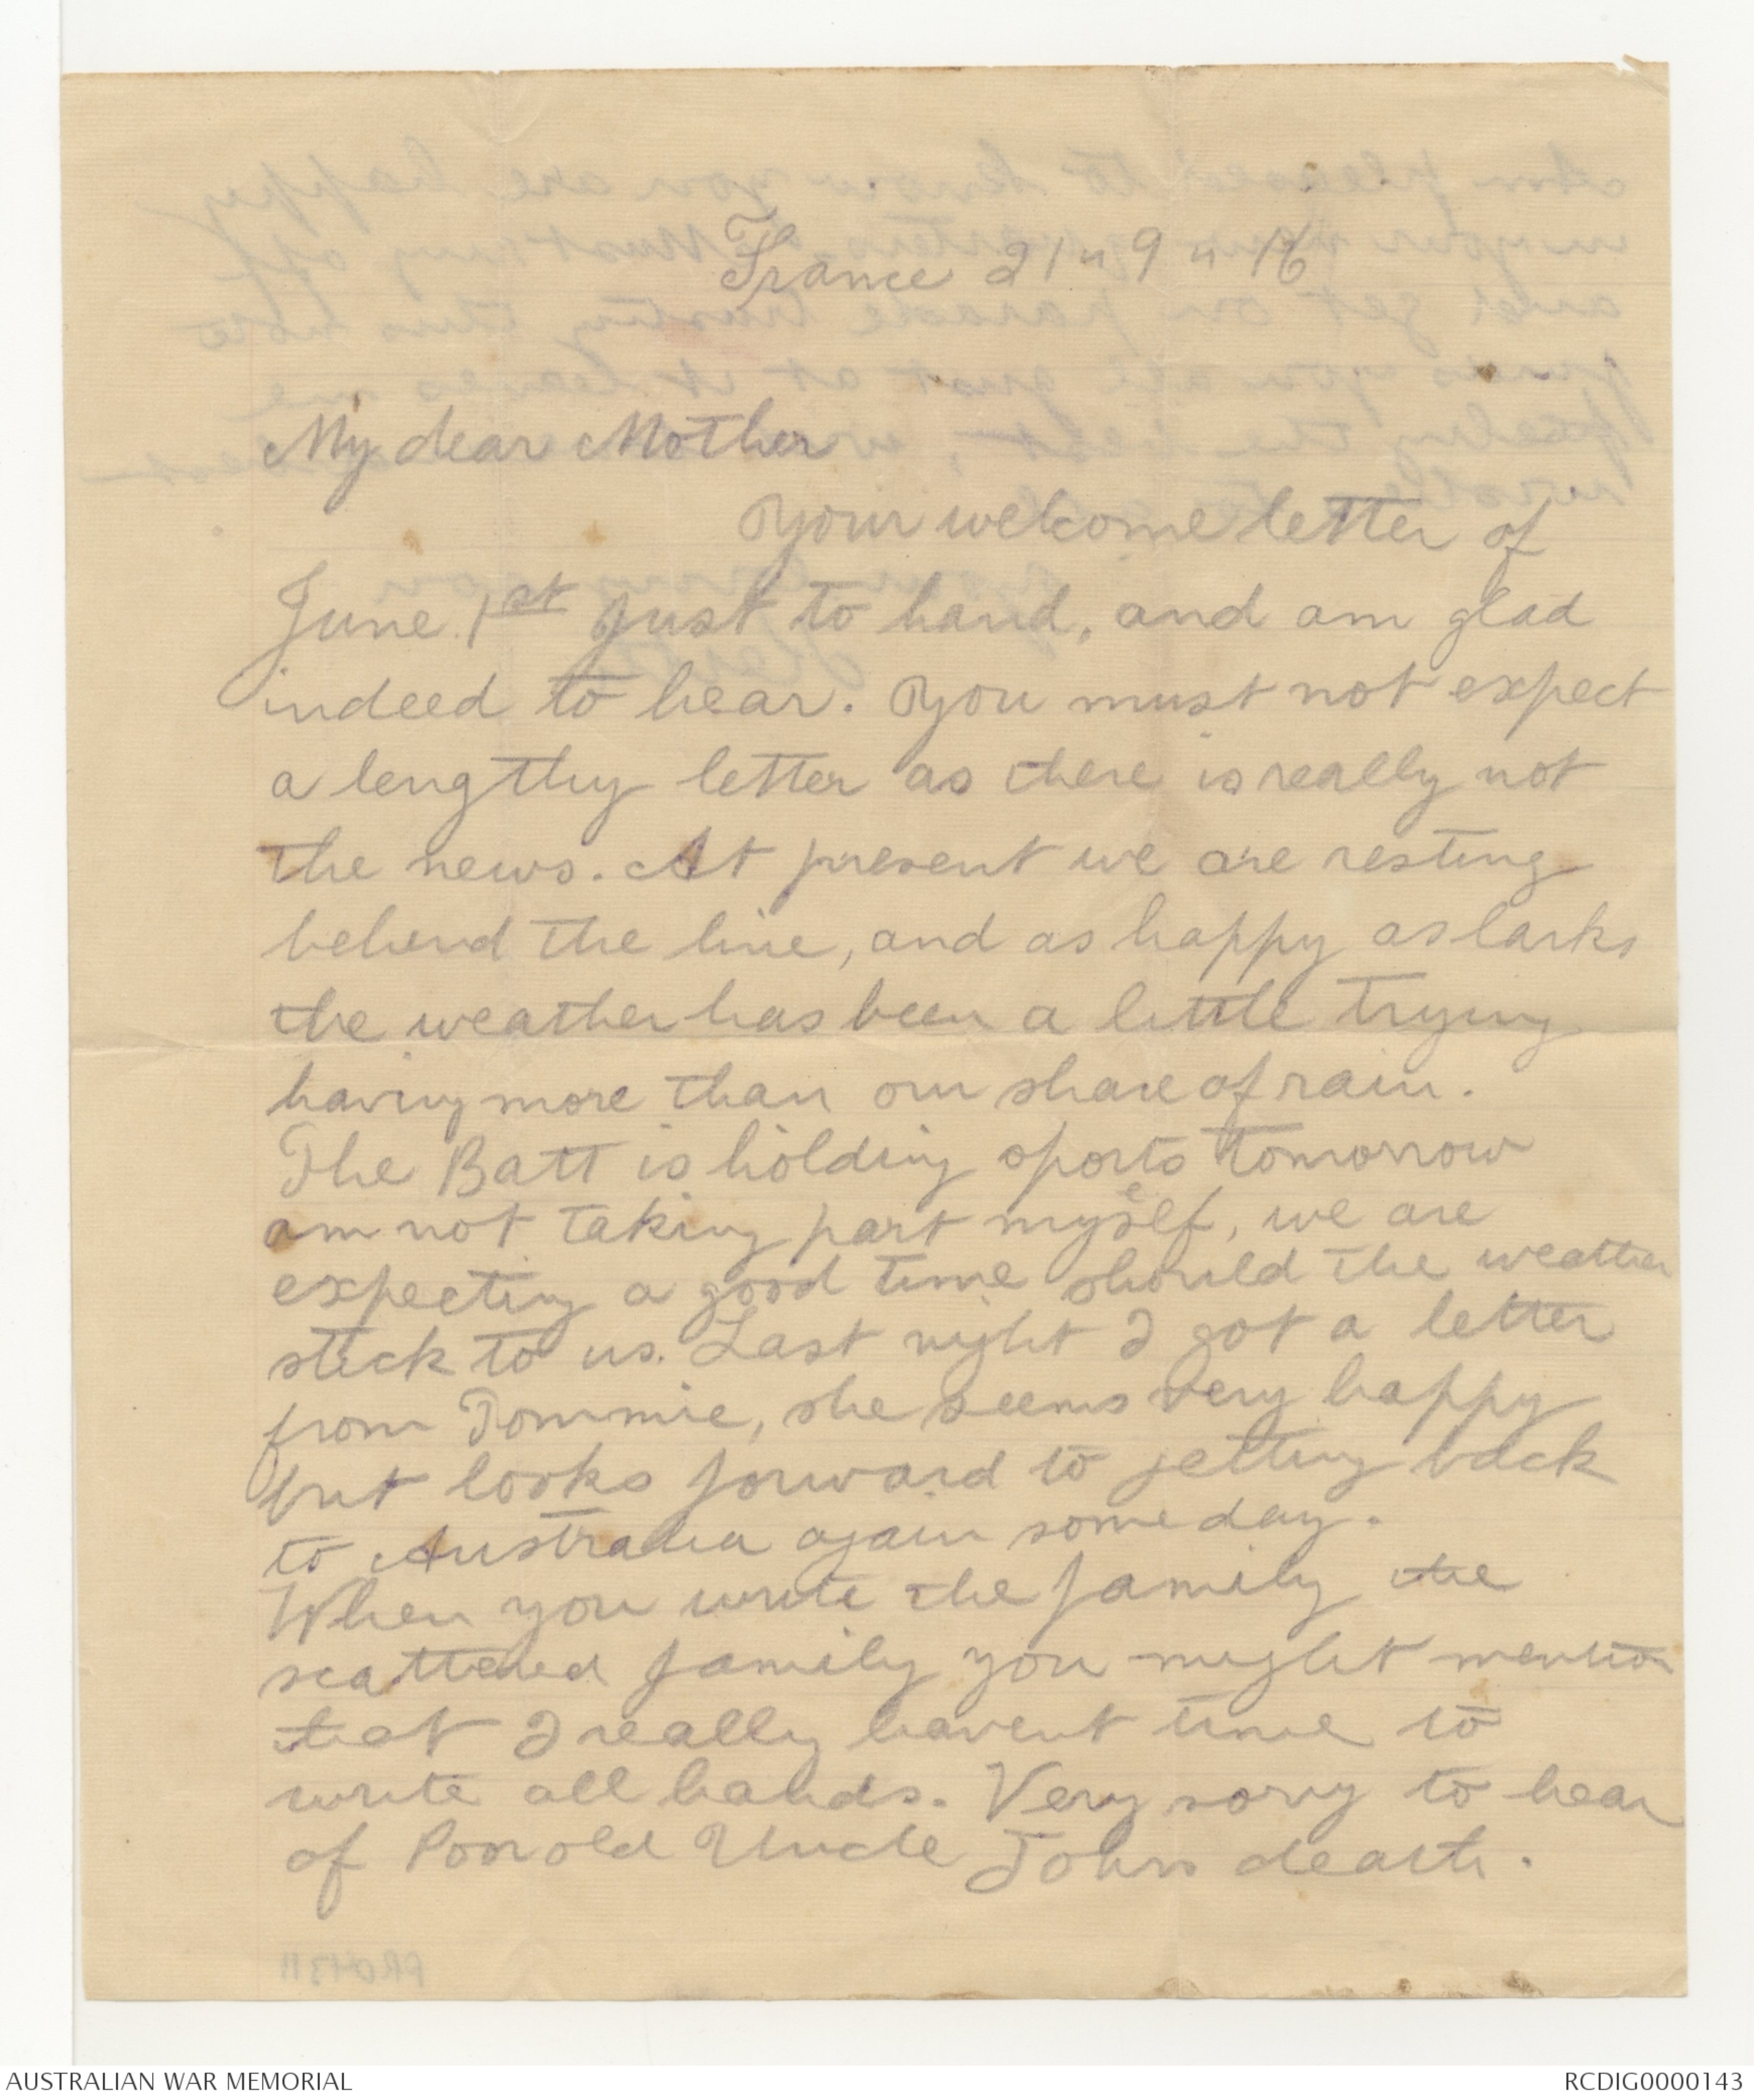 France 21 " 9 " 16
My dear Mother
Your welcome letter of
June 1st just to hand, and am glad
indeed to hear. You must not expect
a lengthy letter as there is really not
the news. At present we are resting
behind the line, and as happy as larks
the weather has been a little trying
having more than our share of rain.
The Batt is holding sports tomorrow
am not taking part myself, we are
expecting a good time should the weather
stick to us. Last night I got a letter
from Tommie, she seems very happy
but looks forward to getting back
to Australia again some day.
When you write the family the
scattered family you might mention
that I really havent time to
write all hands. Very sorry to hear
of Poor old Uncle Johns death.
AUSTRALIAN WAR MEMORIAL
RCDIG0000143